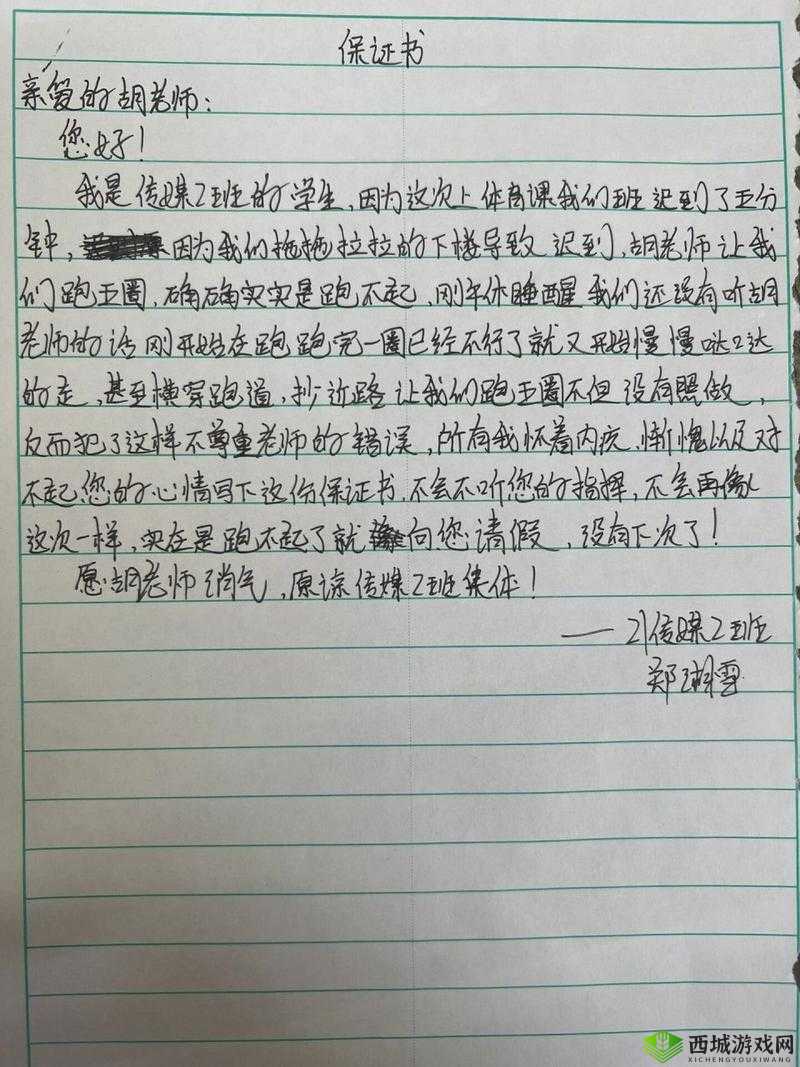 保证书
亲爱的胡老师:
您好!
我是传媒2班的学生,因为这次上体育课我们班迟到了五分
钟,因为我们拖拖拉拉的下楼导致迟到,胡老师让我
们跑五圈,确确实实是跑不起,刚午休睡醒我们还没有听胡
老师的话刚开始在跑跑完一圈已经不行了就又开始慢慢哒哒
的走,甚至横穿跑道,抄近路让我们跑五圈不但没有照做,
反而犯了这样不尊重老师的错误,所有我怀着内疚、惭愧以及对
不起您的心情写下这份保证书,不会不听您的指挥,不会再像
这次一样,实在是跑不起了就向您请假,没有下次了!
愿胡老师消气,原谅传媒2班集体!
——21传媒2班
郑湖雪
西城游戏网
XICHENGYOUXIWANG